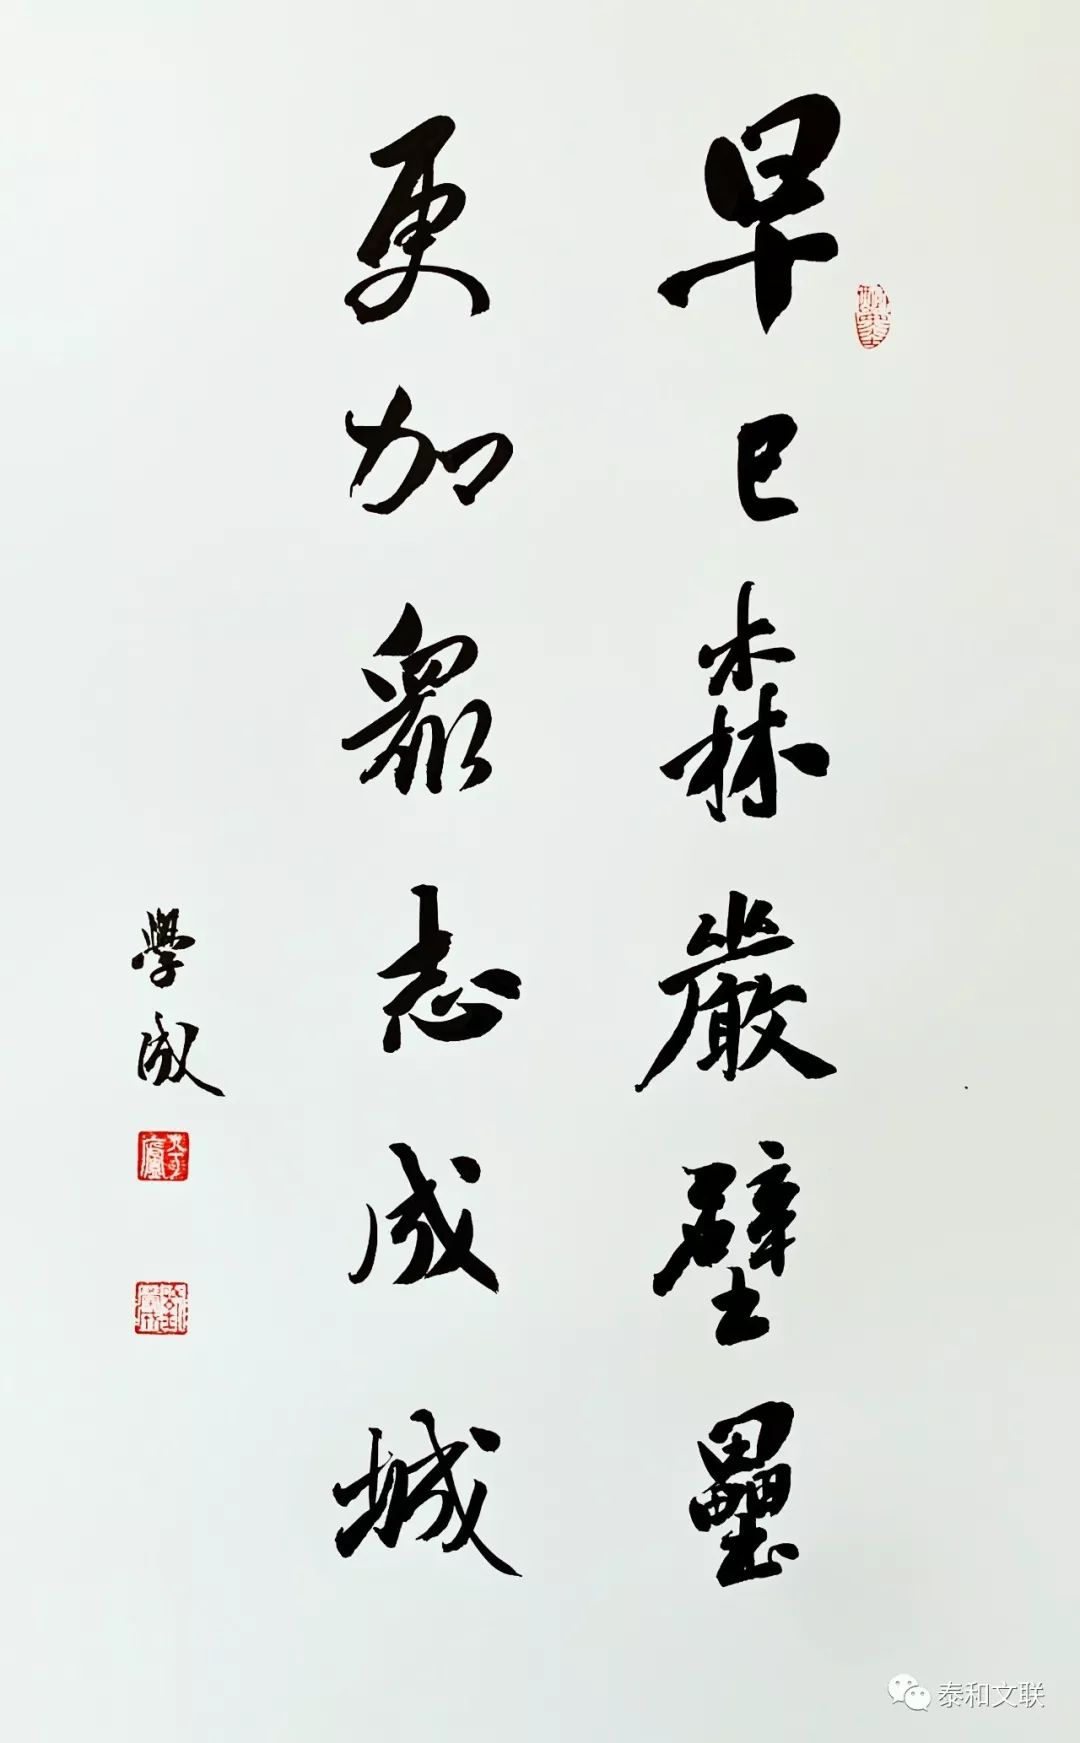 早已森嚴壁壘
更加眾志成城
學成
泰和文联